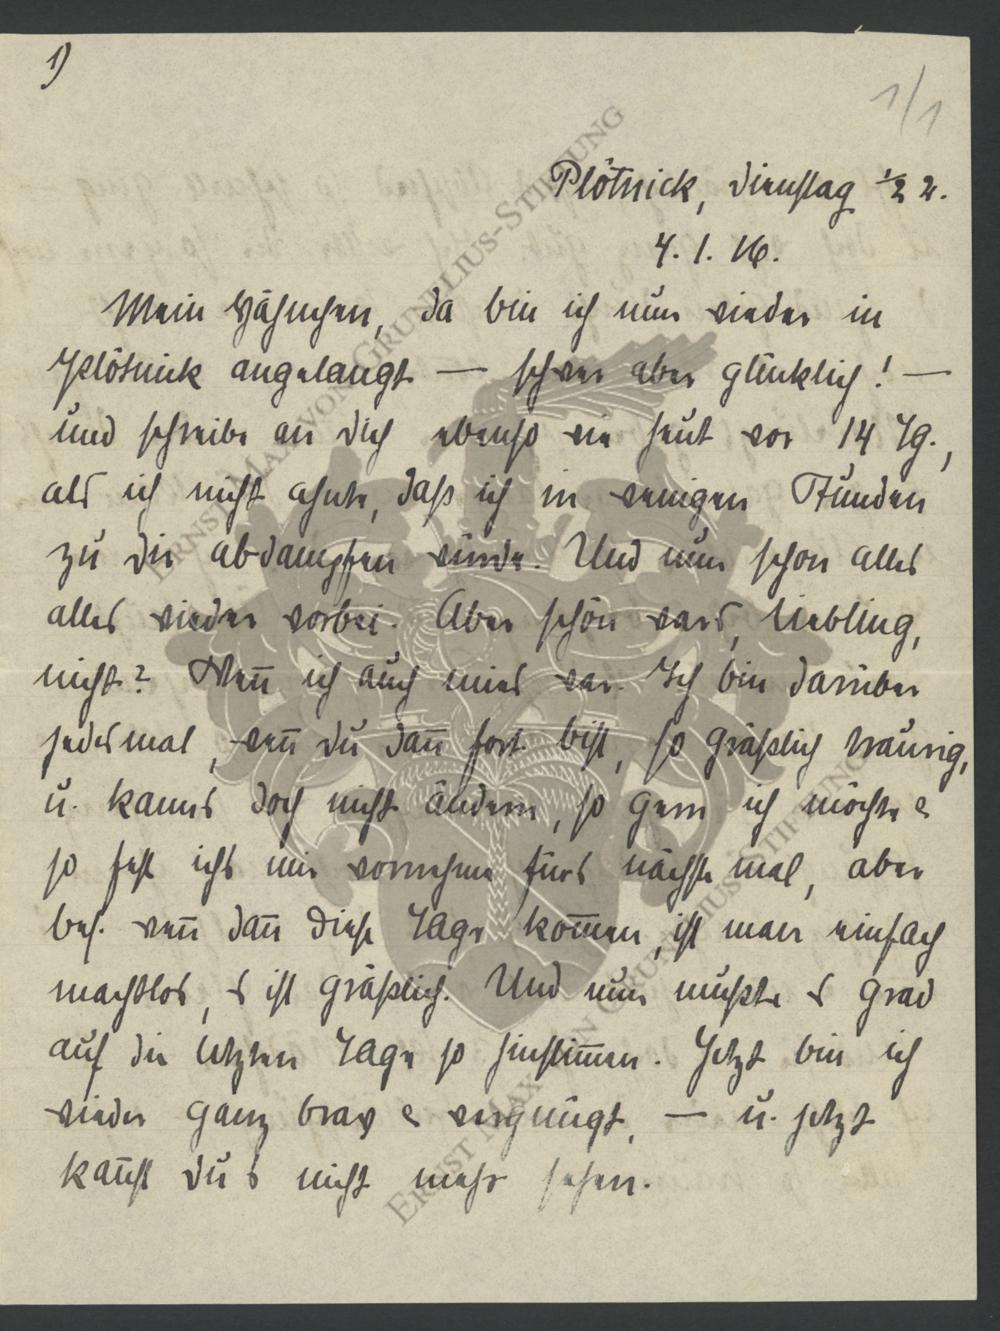 1)
1/1
Plötnick, Dienstag ½ 2.
4. I. 16.
Mein Hähnchen, da bin ich nun wieder in
Plötnick angelangt — schwer aber glücklich! —
und schreibe an Dich ebenso wie heut vor 14 Tg.,
als ich nicht ahnte, daß ich in wenigen Stunden
zu Dir abdampfen würde. Und nun schon alles
alles wieder vorbei. Aber schön wars, Liebling,
nicht? Wen̄ ich auch mies war. Ich bin darüber
jedesmal, wen̄ Du dan̄ fort bist, so gräßlich traurig,
u. kanns doch nicht ändern, so gern ich möchte &
so fest ichs mir vornehme fürs nächste mal, aber
bes. wen̄ dan̄ diese Tage kom̄en, ist man einfach
machtlos, s ist gräßlich. Und nun mußte s grad
auf die letzten Tage so hinstim̄en. Jetzt bin ich
wieder ganz brav & vergnügt, — u. jetzt
kan̄st Du s nicht mehr sehen.
ERNST MAX VON GRUNELIUS-STIFTUNG
ERNST MAX VON GRUNELIUS-STIFTUNG